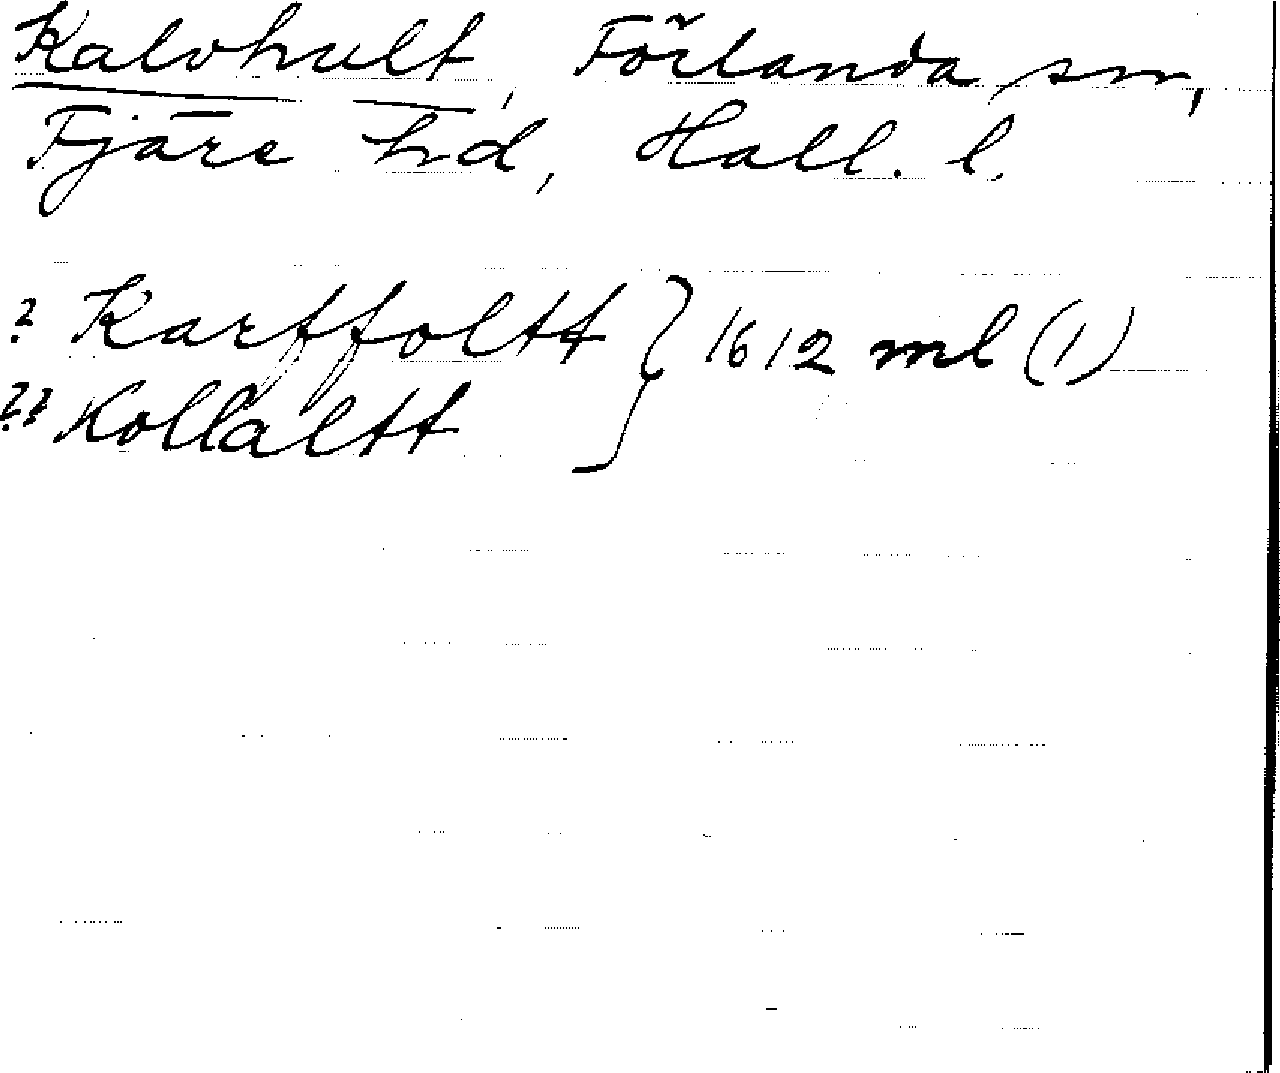 Kalvhult, Förlanda sn,
Fjäre hd, Hall. l.
? Karffoltt } 1612 ml (1)
?? Kollaltt